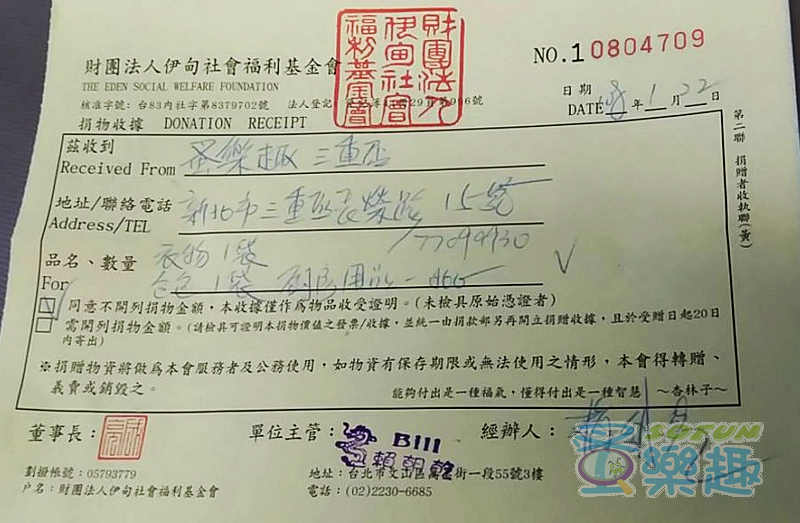 財團法人伊甸社會福利基金會
財團法人伊甸社會福利基金會
NO.1 0804709
THE EDEN SOCIAL WELFARE FOUNDATION
核准字號：台83內社字第8379702號 法人登記
日期
DATE 1月22日
捐物收據 DONATION RECEIPT
第二聯 捐贈者收執聯(黃)
茲收到
Received From 樂趣 三重店
地址/聯絡電話 新北市三重區 15號
Address/TEL
品名、數量 衣物1袋
For 1袋
同意不開列捐物金額，本收據僅作為物品收受證明。(未檢具原始憑證者)
需開列捐物金額。(請檢具可證明本捐物價值之發票/收據，並統一由捐款部另再開立捐贈收據，且於受贈日起20日
內寄出)
※捐贈物資將做為本會服務者及公務使用，如物資有保存期限或無法使用之情形，本會得轉贈、
義賣或銷毀之。
能夠付出是一種福氣，懂得付出是一種智慧 ～杏林子～
董事長：
單位主管： B111
賴朝乾
經辦人：
SOFUN
樂趣
劃撥帳號：05793779
戶名：財團法人伊甸社會福利基金會
地址：台北市文山區萬 街一段55號3樓
電話：(02)2230-6685